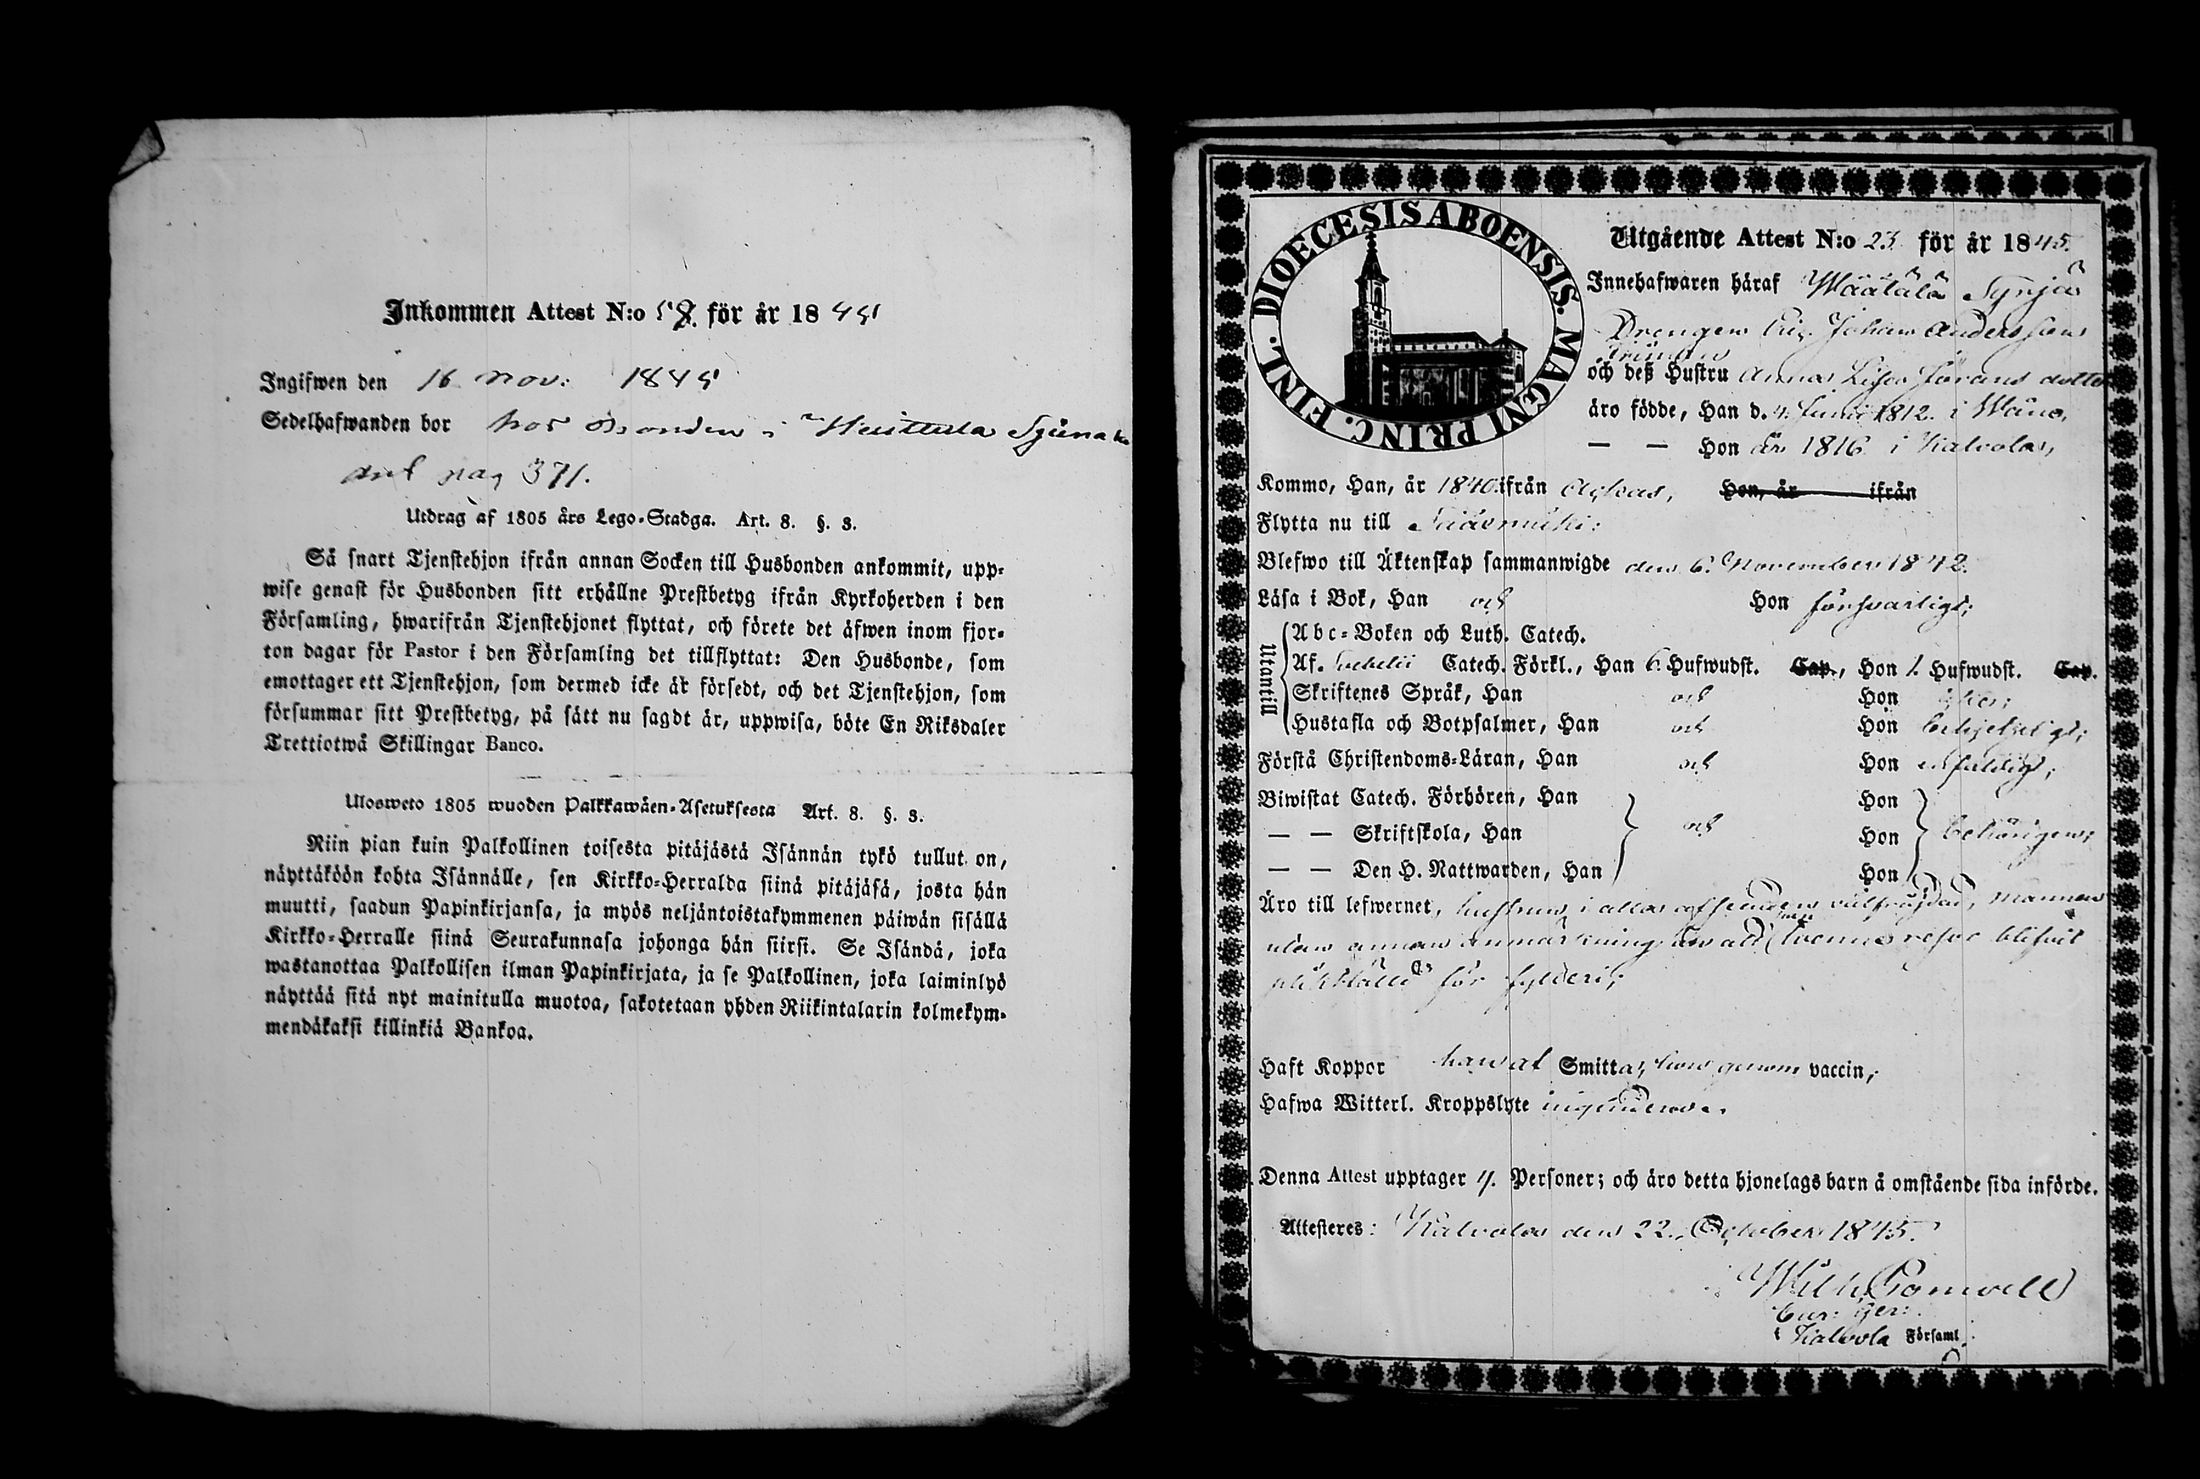 Inkommen Attest N:o 58. för år 1845
Ingifwen den 16 nov: 1845
Sedelhafwanden bor hos Bonden i
dul pag 371.
Utdrag af 1805 års Lego-Stadga. Art. 8. §. 3.
Så snart Tjenstehjon ifrån annan Socken till Husbonden ankommit, upp-
wise genast för Husbonden sitt erhållne Prestbetyg ifrån Kyrkoherden i den
Församling, hwarifrån Tjenstehjonet flyttat, och förete det äfwen inom fjor-
ton dagar för Pastor i den Församling det tillflyttat: Den Husbonde, som
emottager ett Tjenstehjon, som dermed icke är försedt, och det Tjenstehjon, som
försummar sitt Prestbetyg, på sätt nu sagdt är, uppwisa, böte En Riksdaler
Trettiotwå Skillingar Banco.
Ulosweto 1805 wuoden Palkkawäen-Asetuksesta Art. 8. §. 3.
Niin pian kuin Palkollinen toisesta pitäjästä Isännän tykö tullut on,
näyttäköön kohta Isännälle, sen Kirkko-Herralda siinä pitäjäsä, josta hän
muutti, saadun Papinkirjansa, ja myös neljäntoistakymmenen päiwän sisällä
Kirkko-Herralle siinä Seurakunnasa johonga hän siirsi. Se Isändä, joka
wastanottaa Palkollisen ilman Papinkirjata, ja se Palkollinen, joka laiminlyö
näyttää sitä nyt mainitulla muotoa, sakotetaan yhden Riikintalarin kolmekym-
mendäkaksi killinkiä Bankoa.
DIOECESIS ABOENSIS. MAGNI PRINC. FINL.
Utgående Attest N:o 23 för år 1845.
Innehafwaren häraf Määtälä Syrjä
Drengen Johan Andersson
och deß Hustru Anna Lisa Görans dotter
äro födde, Han d. 4 Junii 1812. i Wånå,
— — Hon år 1816 i Kalvola,
Kommo, Han, år 1840. ifrån Ackas, Hon, år ifrån
Flytta nu till Sääxmäki:
Blefwo till Äktenskap sammanwigde den 6. November 1842.
Läsa i Bok, Han och Hon försvarligt;
Utantill
Abc-Boken och Luth. Catech.
Af Svebelii Catech. Förkl., Han 6. Hufwudst. Cap., Hon 1. Hufwudst. Cap.
Skriftenes Språk, Han och Hon
Hustafla och Botpsalmer, Han och Hon behjelpeligt;
Första Christendoms-Läran, Han och Hon enfaldigt;
Biwistat Catech. Förhören, Han Hon
— — Skriftskola, Han och Hon behörigen;
— — Den H. Nattwarden, Han Hon
Äro till lefwernet, hustrun i alla afseenden välfrejdad, mannen
utan annan anmärkning än att han tvenne resor blifvit
pliktfälld för fylleri;
Haft Koppor han af Smitta, hon genom vaccin;
Hafwa Witterl. Kroppslyte ingendera.
Denna Attest upptager 4. Personer; och äro detta hjonelags barn å omstående sida införde.
Attesteres: Kalvola den 22. October 1845.
Wilh.
i Kalvola Församl.